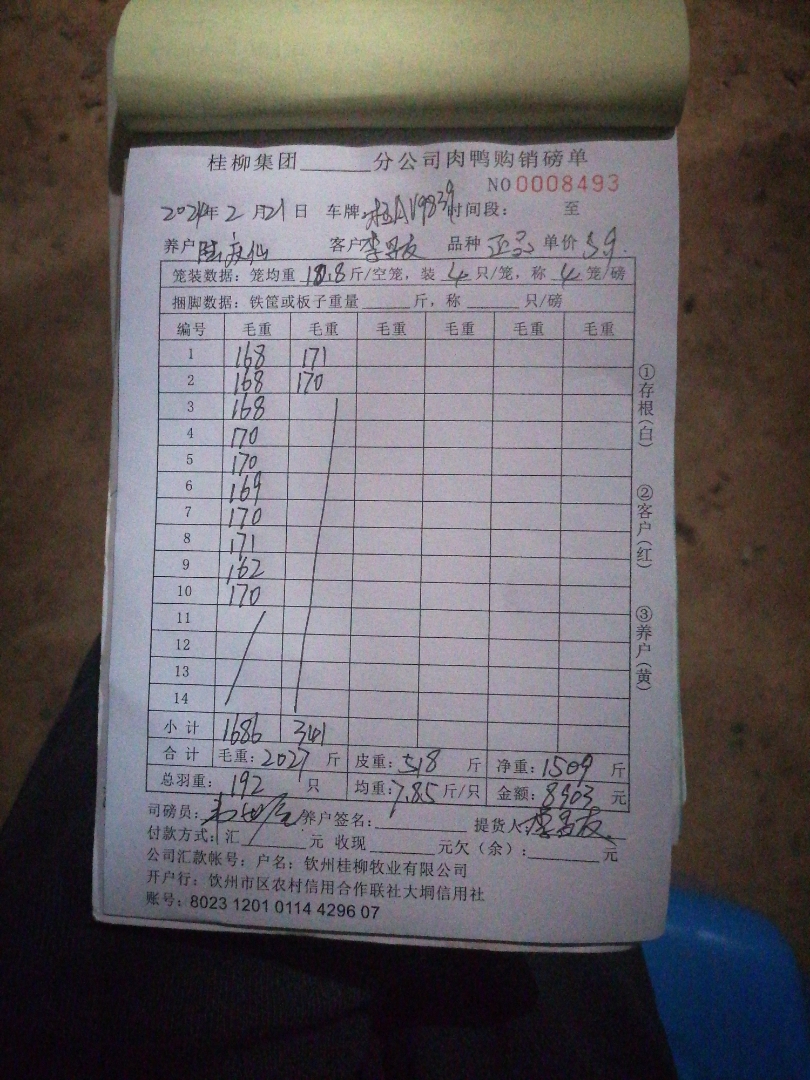 桂柳集团______分公司肉鸭购销磅单
NO 0008493
2024年2月21日 车牌: 桂AV9839 时间段: 至
养户 客户 李男友 品种 正品 单价 5.9
笼装数据: 笼均重 10.8 斤/空笼, 装 4 只/笼, 称 4 笼/磅
捆脚数据: 铁筐或板子重量______斤, 称______只/磅
编号 毛重 毛重 毛重 毛重 毛重 毛重
1 168 171
2 168 170
3 168
4 170
5 170
6 169
7 170
8 171
9 162
10 170
11
12
13
14
小计 1686 341
合计 毛重: 2027 斤 皮重: 518 斤 净重: 1509 斤
总羽重: 192 只 均重: 7.85 斤/只 金额: 8903 元
司磅员: 养户签名:________ 提货人: 李男友
付款方式: 汇______元 收现______元欠（余）:______元
公司汇款帐号: 户名: 钦州桂柳牧业有限公司
开户行: 钦州市区农村信用合作联社大垌信用社
账号: 8023 1201 0114 4296 07
①存根(白)
②客户(红)
③养户(黄)